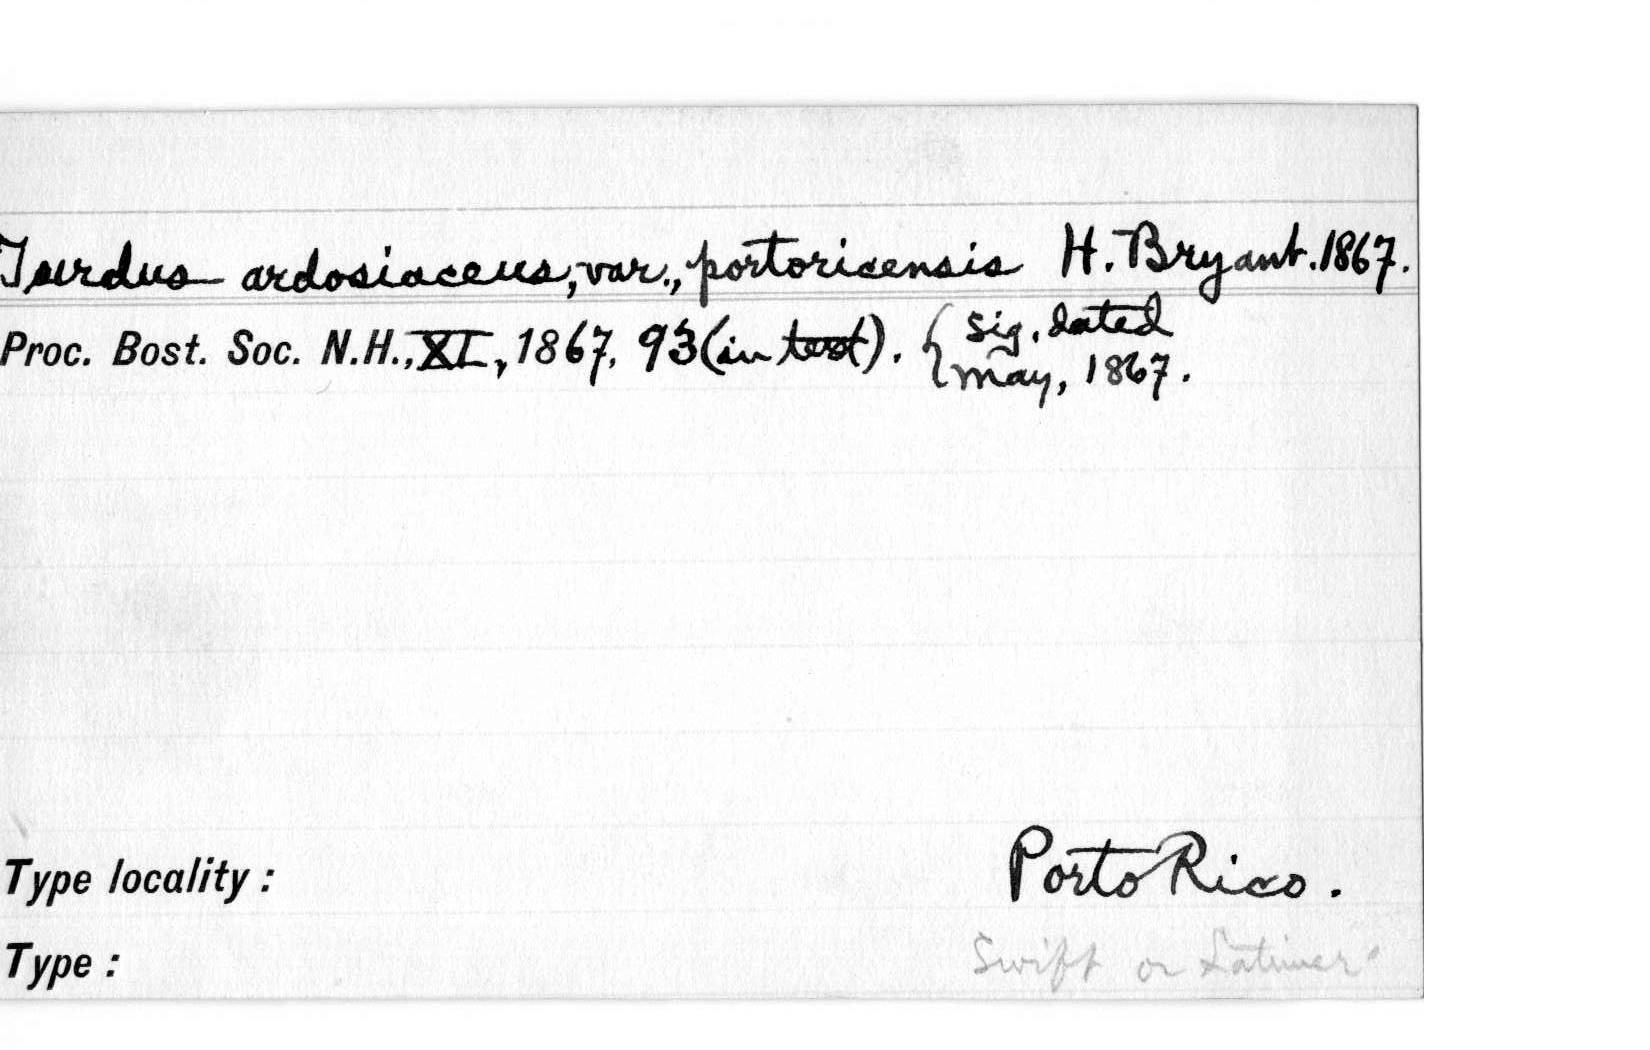 Turdus ardosiaceus, var., portoricensis H. Bryant. 1867.
Proc. Bost. Soc. N.H., XI, 1867, 93 (in text). { Sig. dated
May, 1867.
Type locality: Porto Rico.
Type: Swift or Latimer